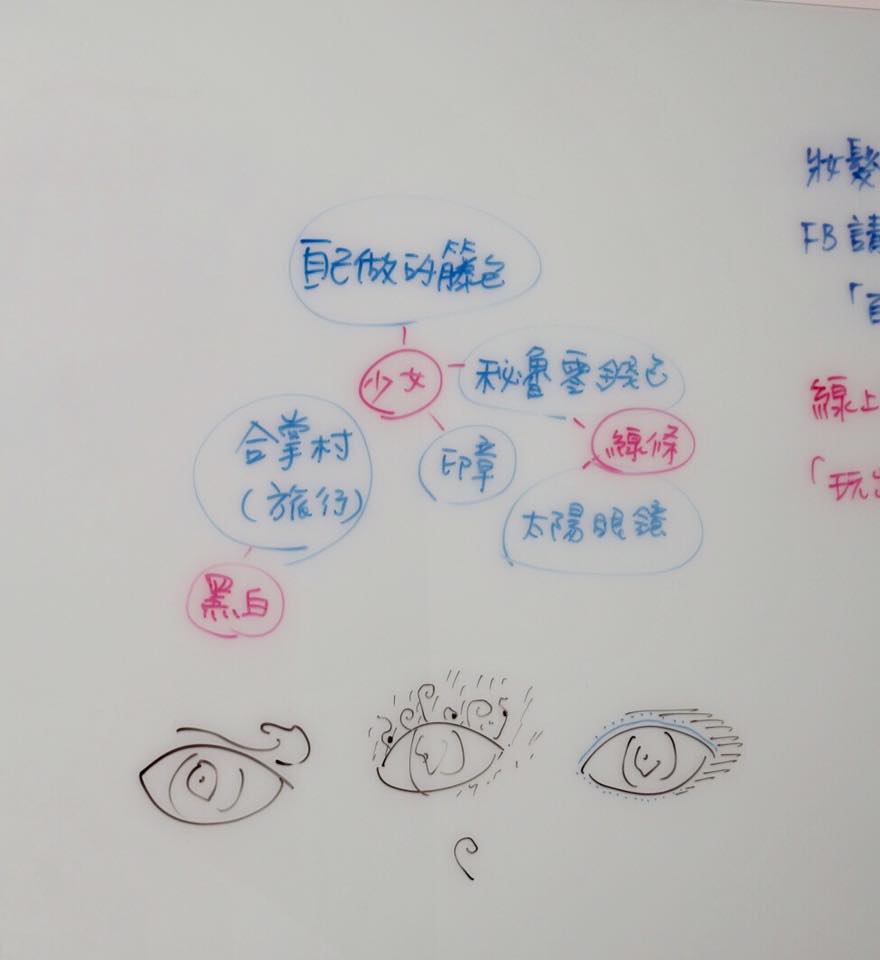 自己做的籐包
少女
秘魯零錢包
合掌村
(旅行)
印章
線條
太陽眼鏡
黑白
妝髮
FB 請
「自
線上
「玩